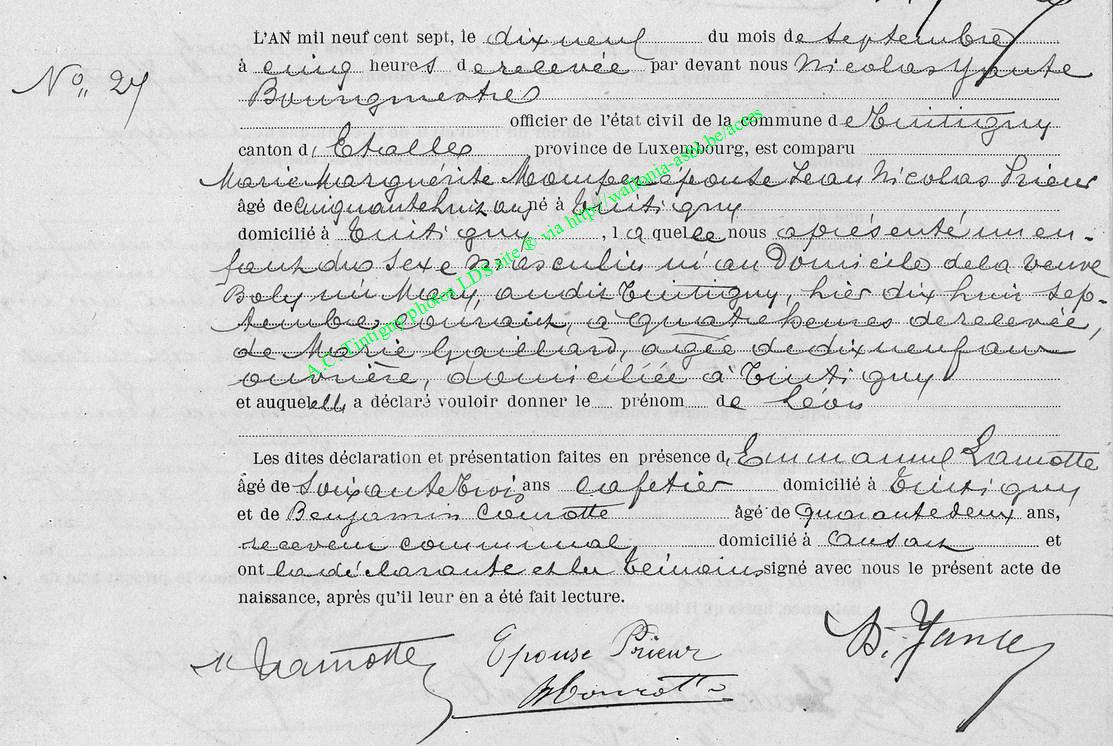 L'AN mil neuf cent sept, le dix neuf du mois de septembre
N° 27 à cinq heures de relevée par devant nous Nicolas Yante
Bourgmestre
officier de l'état civil de la commune de Tintigny
canton d'Etalle province de Luxembourg, est comparu
Marie Marguérite épouse Jean Nicolas Prieur
âgé de cinquante huit ans né à Tintigny
domicilié à Tintigny, laquelle nous a présenté un en-
fant du sexe Masculin né au Domicile de la veuve
Boly audit Tintigny, hier dix huit sep-
tembre courant, à quatre heures de relevée,
de Marie Gaillard, agée de dix neuf ans
ouvrière, domiciliée à Tintigny
et auquel elle a déclaré vouloir donner le prénom de Léon
Les dites déclaration et présentation faites en présence d'Emmanuel Lamotte
âgé de soixante trois ans cafetier domicilié à Tintigny
et de Benjamin Courotte âgé de quarante deux ans,
receveur communal domicilié à Ansart et
ont la déclarante et les témoins signé avec nous le présent acte de
naissance, après qu'il leur en a été fait lecture.
Lamotte Epouse Prieur N. Yante
B Courotte
A.C. Tintigny photos LDS site ® via http://wallonia-asbl.be/acces